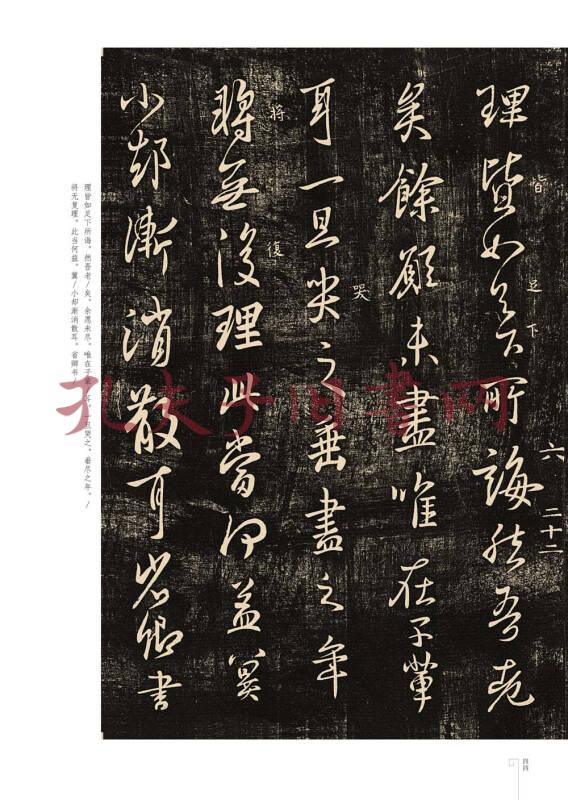 六 二十二
理皆如足下所誨然吾老
皆 足下
矣餘願未盡唯在子輩
耳一旦哭之垂盡之年
哭
將無復理此當何益冀
将 復
小却漸消散耳省卿書
理皆如足下所诲，然吾老/矣，余愿未尽，唯在子辈/耳，一旦哭之，垂尽之年，/
将无复理，此当何益，冀/小却渐消散耳，省卿书
孔夫子旧书网
四四